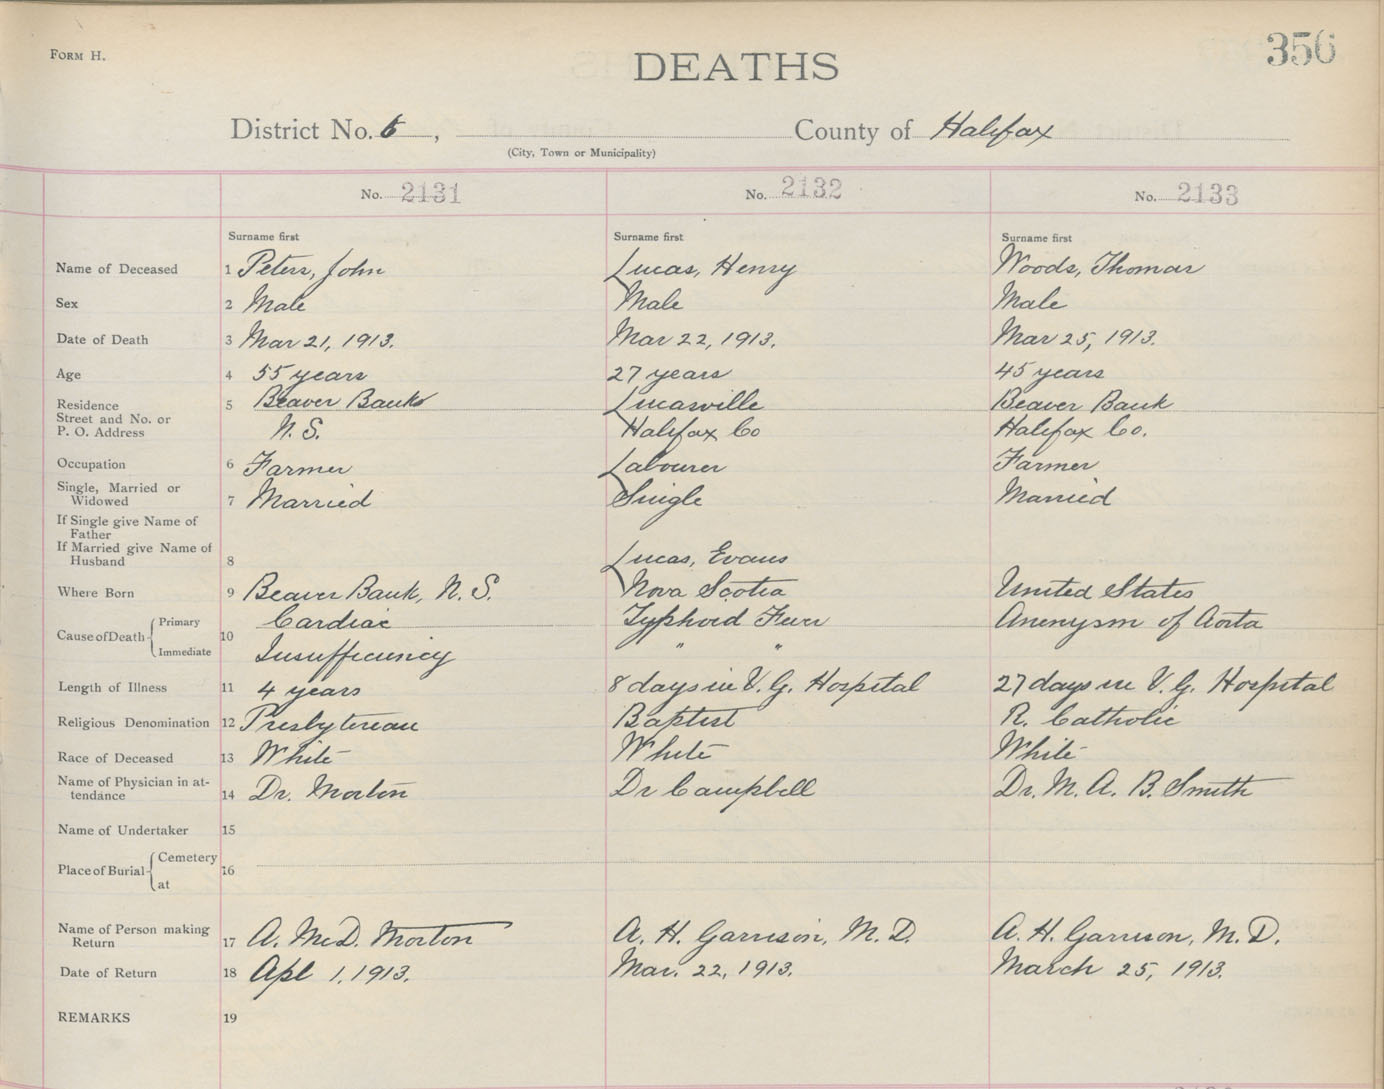 FORM H.
DEATHS
356
District No. 6, County of Halifax
(City, Town or Municipality)
No. 2131 No. 2132 No. 2133
Surname first Surname first Surname first
Name of Deceased 1 Peters, John Lucas, Henry Woods, Thomas
Sex 2 Male Male Male
Date of Death 3 Mar 21, 1913. Mar 22, 1913. Mar 25, 1913.
Age 4 55 years 27 years 45 years
Residence 5 Beaver Banks Lucasville Beaver Bank
Street and No. or
P. O. Address N.S. Halifax Co Halifax Co.
Occupation 6 Farmer Labourer Farmer
Single, Married or
Widowed 7 Married Single Married
If Single give Name of
Father
If Married give Name of
Husband 8 Lucas, Evans
Where Born 9 Beaver Bank, N.S. Nova Scotia United States
Cause of Death Primary 10 Cardiac Typhoid Fever Anenysm of Aorta
Immediate Insufficiency " "
Length of Illness 11 4 years 8 days in V.G. Hospital 27 days in V.G. Hospital
Religious Denomination 12 Presbyterean Baptist R. Catholic
Race of Deceased 13 White White White
Name of Physician in at-
tendance 14 Dr. Morton Dr Campbell Dr. M. A. B. Smith
Name of Undertaker 15
Place of Burial Cemetery 16
at
Name of Person making
Return 17 A. McD. Morton A. H. Garrison, M.D. A. H. Garrison, M.D.
Date of Return 18 Apl 1, 1913. Mar. 22, 1913. March 25, 1913.
REMARKS 19